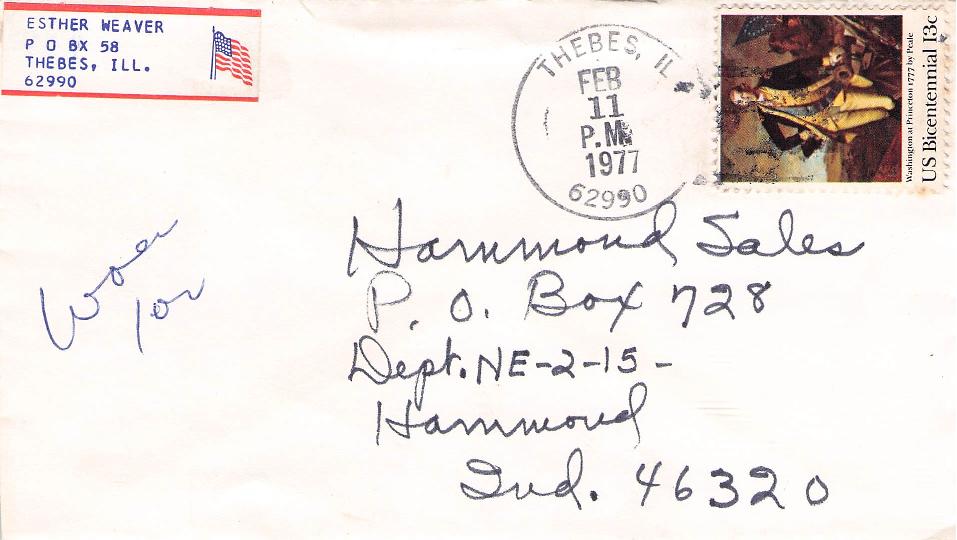 ESTHER WEAVER
P O BX 58
THEBES, ILL.
62990
THEBES, IL
FEB
11
P.M.
1977
62990
Washington at Princeton 1777 by Peale
US Bicentennial 13c
Hammond Sales
P. O. Box 728
Dept. NE-2-15-
Hammond
Ind. 46320